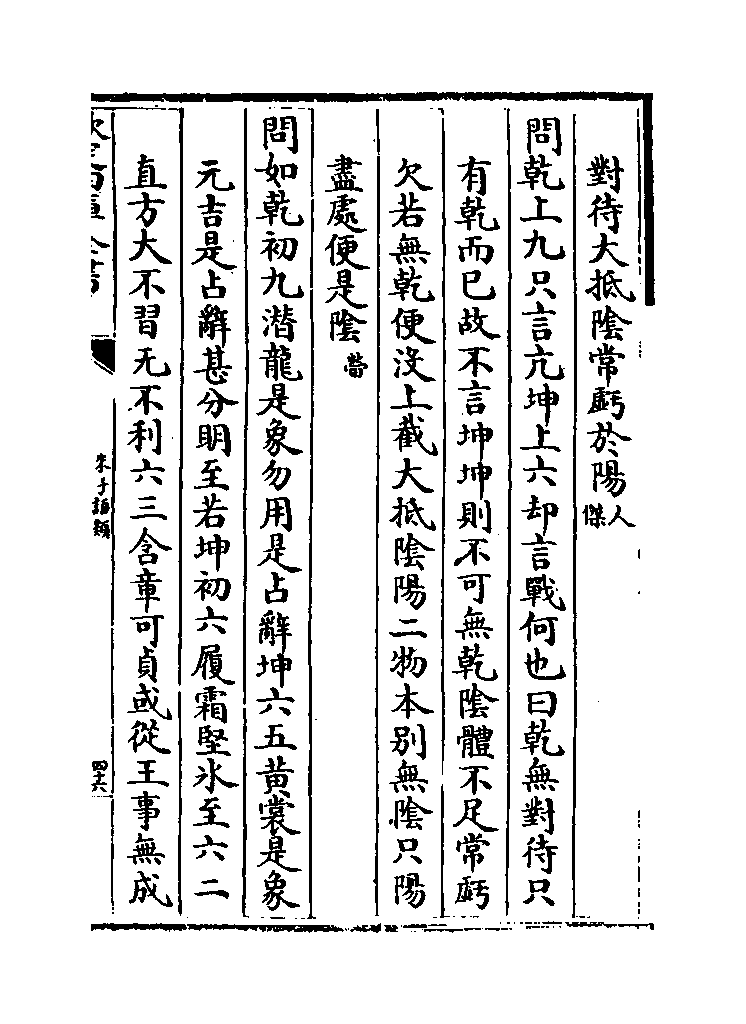 對待大抵陰常虧於陽人傑
問乾上九只言亢坤上六却言戰何也曰乾無對待只
有乾而已故不言坤坤則不可無乾陰體不足常虧
欠若無乾便沒上截大抵陰陽二物本别無陰只陽
盡處便是陰㽦
問如乾初九潛龍是象勿用是占辭坤六五黃裳是象
元吉是占辭甚分明至若坤初六履霜堅氷至六二
直方大不習无不利六三含章可貞或從王事無成
欽定四庫全書
朱子語類
四十六